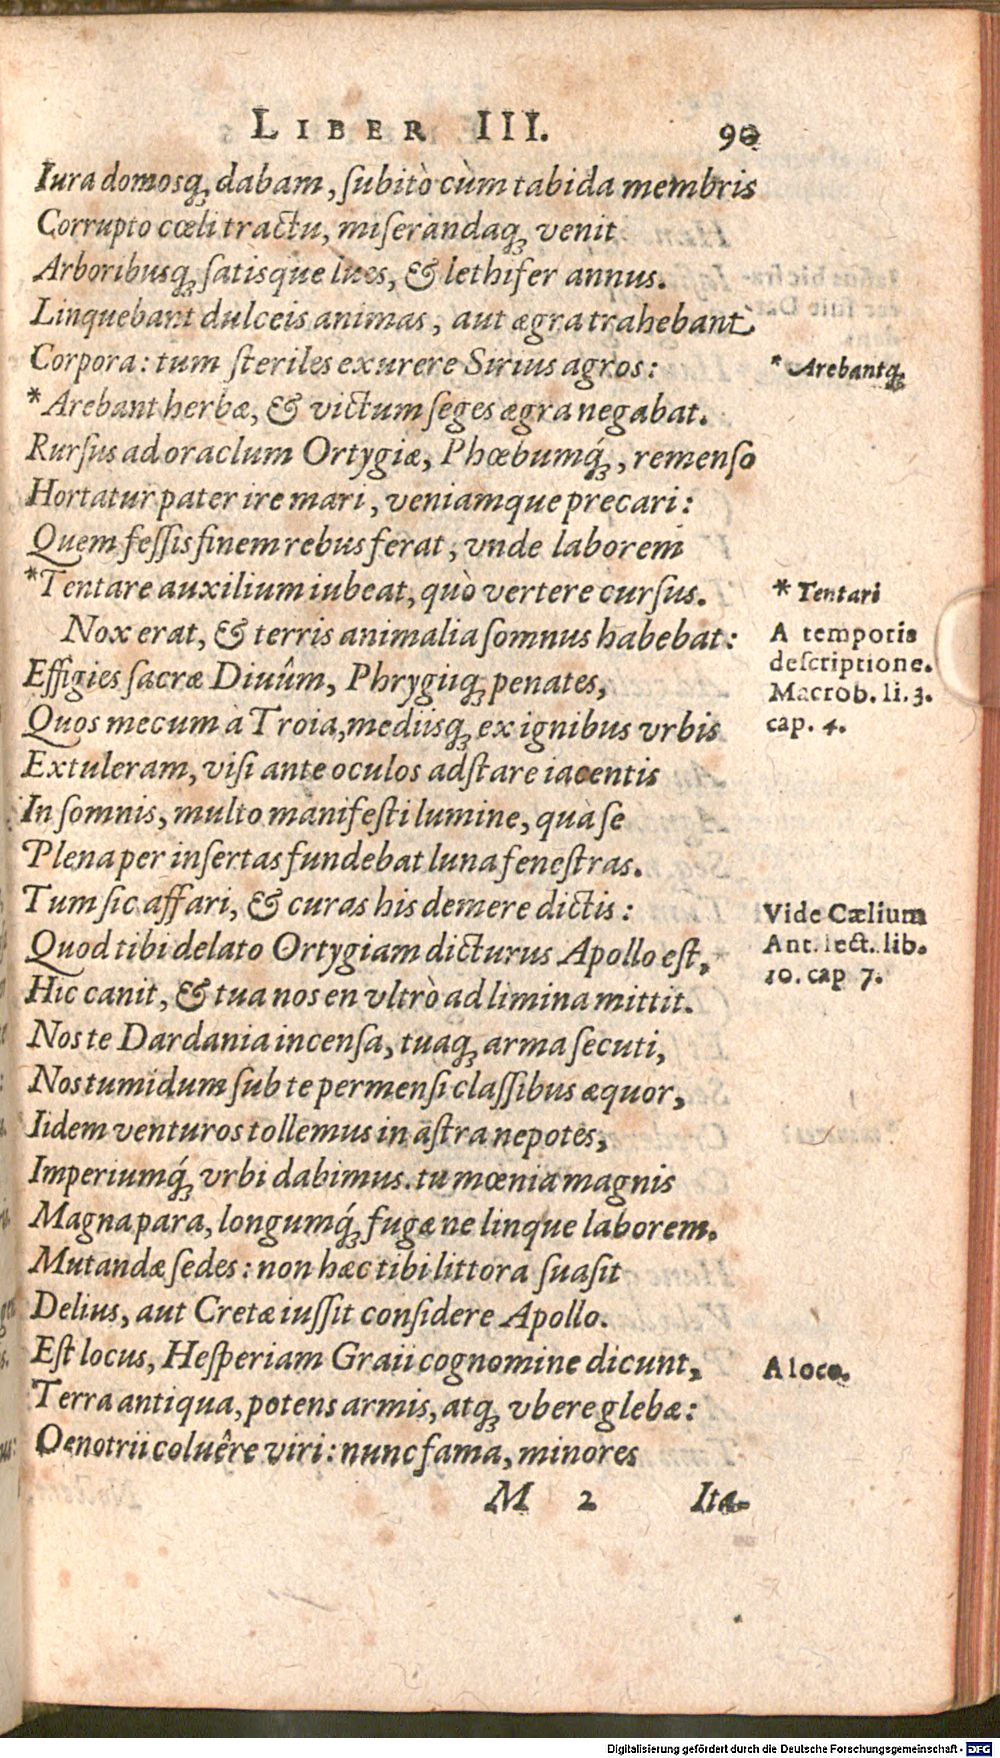 LIBER III. 90
Iura domosq́; dabam, ſubitò cùm tabida membris
Corrupto cœli tractu, miſerandaq; venit
Arboribusq; ſatisque lues, & lethifer annus.
Linquebant dulceis animas, aut ægra trahebant
Corpora: tum ſteriles exurere Sirius agros:
* Arebantq;
*Arebant herbæ, & victum ſeges ægra negabat.
Rurſus ad oraclum Ortygiæ, Phœbumq́;, remenſo
Hortatur pater ire mari, veniamque precari:
Quem feſſis finem rebus ferat, vnde laborem
*Tentare auxilium iubeat, quò vertere curſus.
* Tentari
Nox erat, & terris animalia ſomnus habebat:
A temporis
deſcriptione.
Macrob. li. 3.
cap. 4.
Effigies ſacræ Diuûm, Phrygiiq; penates,
Quos mecum à Troia, mediisq; ex ignibus vrbis
Extuleram, viſi ante oculos adſtare iacentis
In ſomnis, multo manifeſti lumine, qua ſe
Plena per inſertas fundebat luna feneſtras.
Tum ſic affari, & curas his demere dictis:
Vide Cælium
Ant. lect. lib.
10. cap 7.
Quod tibi delato Ortygiam dicturus Apollo eſt,
Hic canit, & tua nos en vltrò ad limina mittit.
Nos te Dardania incenſa, tuaq; arma ſecuti,
Nos tumidum ſub te permenſi claſſibus æquor,
Iidem venturos tollemus in aſtra nepotes,
Imperiumq́; vrbi dabimus. tu mœnia magnis
Magna para, longumq́; fugæ ne linque laborem.
Mutandæ ſedes: non hæc tibi littora ſuaſit
Delius, aut Cretæ iuſſit conſidere Apollo.
Eſt locus, Heſperiam Graii cognomine dicunt,
A loco.
Terra antiqua, potens armis, atq; vbere glebæ:
Oenotrii coluêre viri: nunc fama, minores
M 2 Ita-
Digitalisierung gefördert durch die Deutsche Forschungsgemeinschaft - DFG